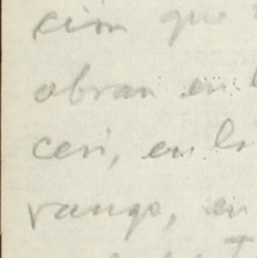 ción que
obran en
ceri, en
rango, en